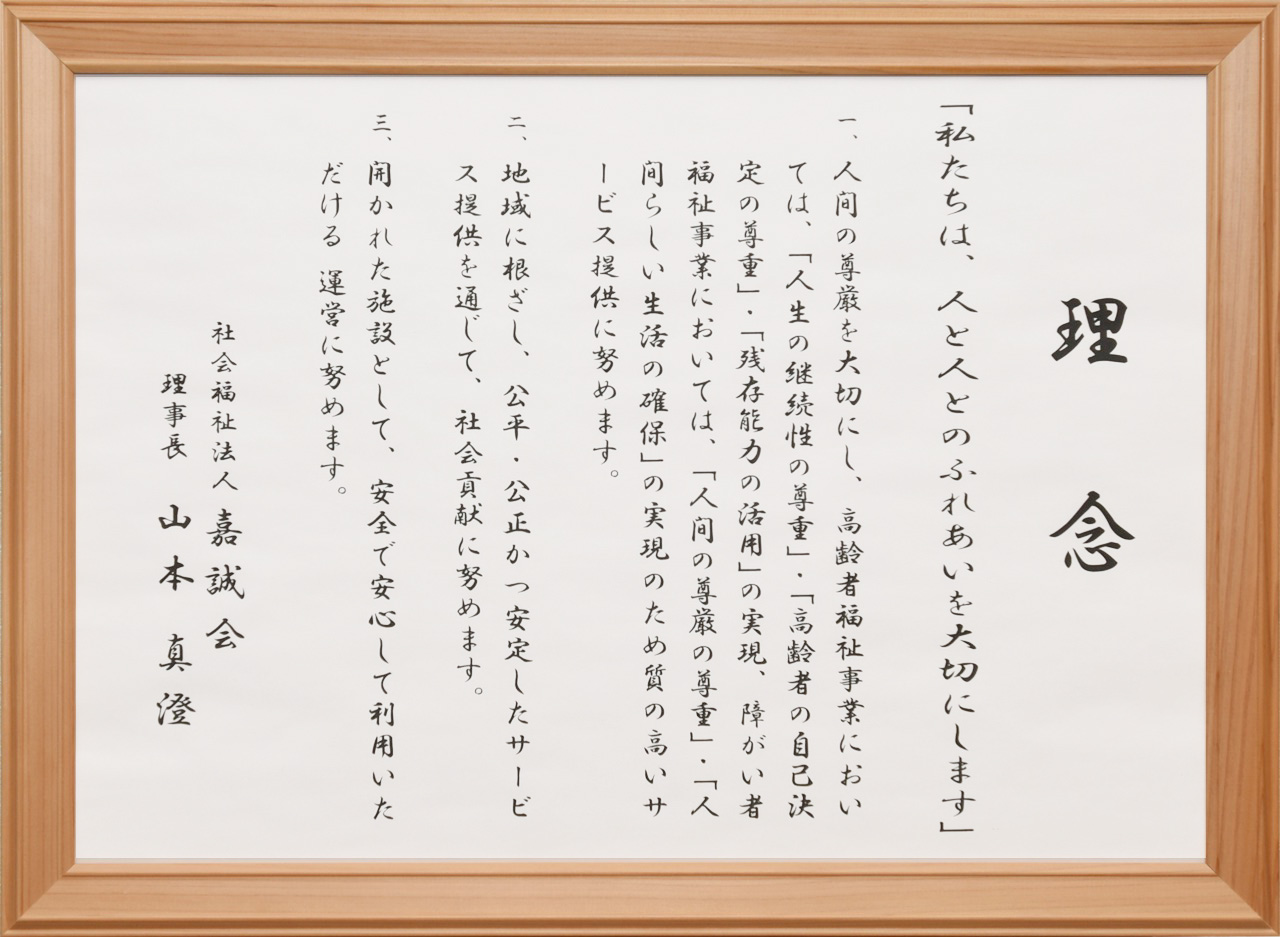 理念
「私たちは、人と人とのふれあいを大切にします」
一、人間の尊厳を大切にし、高齢者福祉事業におい
ては、「人生の継続性の尊重」・「高齢者の自己決
定の尊重」・「残存能力の活用」の実現、障がい者
福祉事業においては、「人間の尊厳の尊重」・「人
間らしい生活の確保」の実現のため質の高いサ
ービス提供に努めます。
二、地域に根ざし、公平・公正かつ安定したサービ
ス提供を通じて、社会貢献に努めます。
三、開かれた施設として、安全で安心して利用いた
だける 運営に努めます。
社会福祉法人 嘉誠会
理事長 山本 真澄